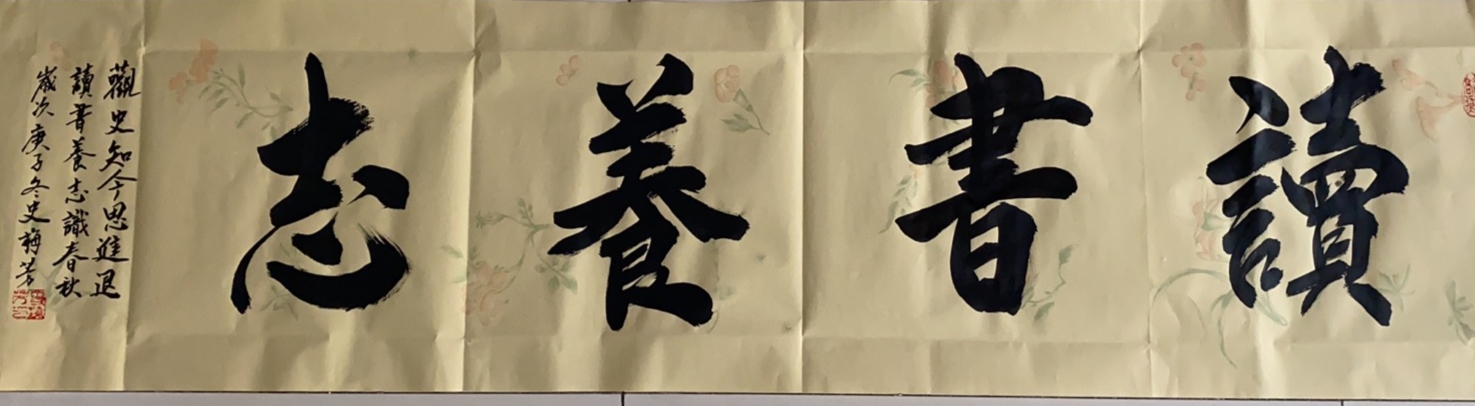 讀書養志
觀史知今思進退
讀書養志識春秋
歲次庚子冬史梅芳